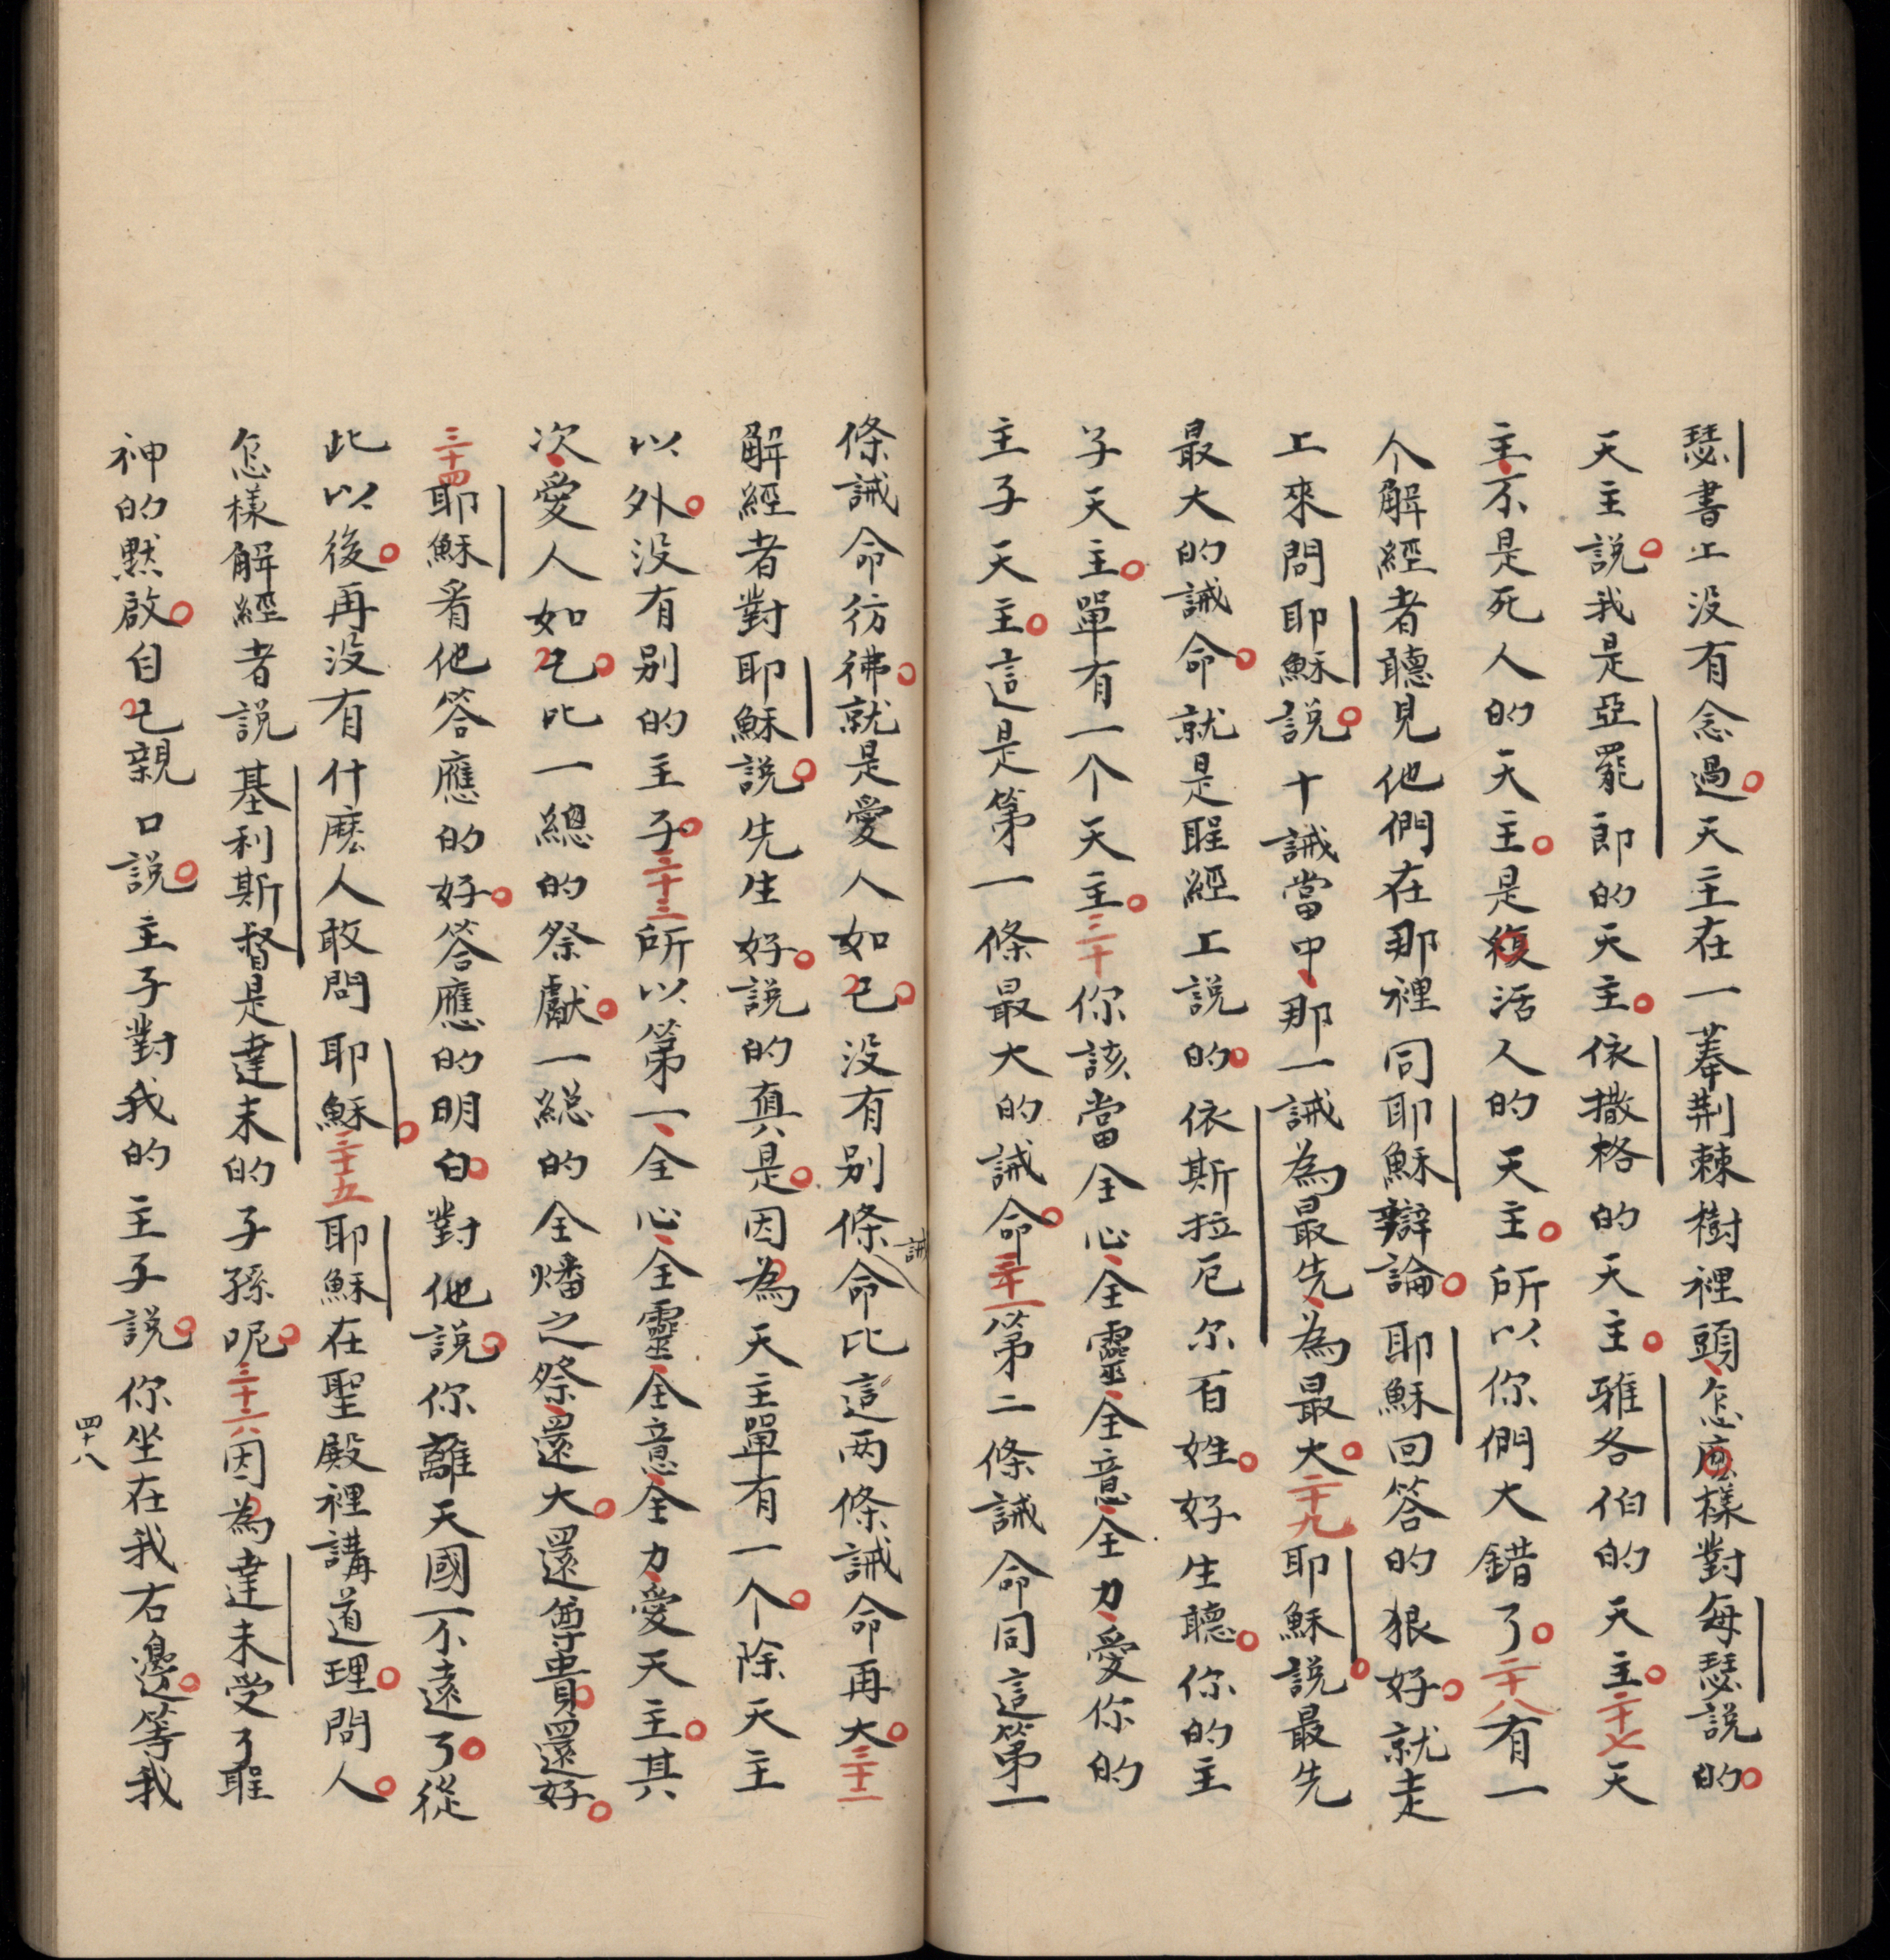 瑟書上没有念過天主在一菶荆棘樹裡頭怎麽樣對每瑟説的
天主説我是亞罷郎的天主依撒格的天主雅各伯的天主二十七天
主不是死人的天主是復活人的天主所以你們大錯了二十八有一
个解經者聽見他們在那裡同耶穌辯論耶穌回答的狠好就走
上來問耶穌説十誡當中那一誡為最先為最大二十九耶穌説最先
最大的誡命就是聖經上説的依斯拉厄尔百姓好生聽你的主
子天主單有一个天主三十你該當全心全靈全意全力愛你的
主子天主這是第一條最大的誡命三十一第二條誡命同這第一
條誡命彷彿就是愛人如己没有別條誡命比這两條誡命再大三十二
解經者對耶穌説先生好説的真是因為天主單有一个除天主
以外没有別的主子三十三所以第一全心全靈全意全力愛天主其
次愛人如己比一總的祭獻一総的全燔之祭還大還尊貴還好
三十四耶穌看他答應的好答應的明白對他説你離天國不遠了從
此以後再没有什麽人敢問耶穌三十五耶穌在聖殿裡講道理問人
怎樣解經者説基利斯督是達未的子孫呢三十六因為達未受了聖
神的默啟自己親口説主子對我的主子説你坐在我右邊等我
四十八